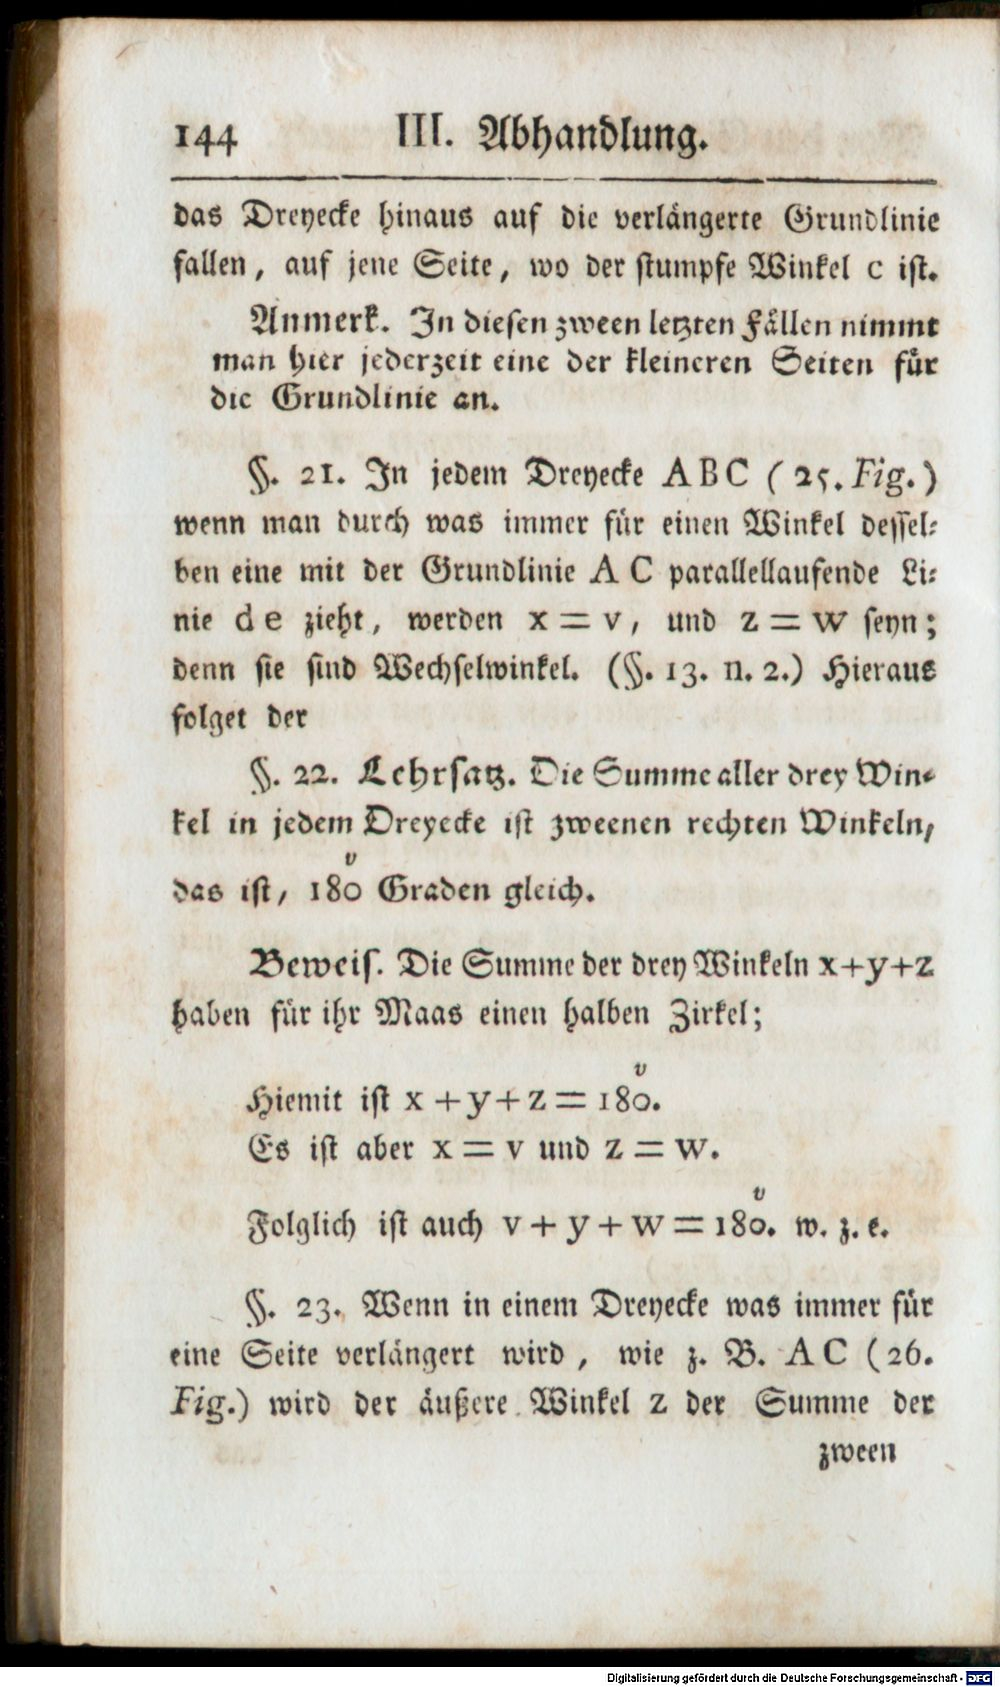 144 III. Abhandlung.
das Dreyecke hinaus auf die verlängerte Grundlinie
fallen, auf jene Seite, wo der stumpfe Winkel c ist.
Anmerk. In diesen zween letzten Fällen nimmt
man hier jederzeit eine der kleineren Seiten für
die Grundlinie an.
§. 21. In jedem Dreyecke ABC (25. Fig.)
wenn man durch was immer für einen Winkel dessel-
ben eine mit der Grundlinie A C parallellaufende Li-
nie d e zieht, werden x = v, und z = w seyn;
denn sie sind Wechselwinkel. (§. 13. n. 2.) Hieraus
folget der
§. 22. Lehrsatz. Die Summe aller drey Win-
kel in jedem Dreyecke ist zweenen rechten Winkeln,
das ist, 180° Graden gleich.
Beweis. Die Summe der drey Winkeln x+y+z
haben für ihr Maas einen halben Zirkel;
Hiemit ist x + y + z = 180°.
Es ist aber x = v und z = w.
Folglich ist auch v + y + w = 180°. w. z. e.
§. 23. Wenn in einem Dreyecke was immer für
eine Seite verlängert wird, wie z. B. A C (26.
Fig.) wird der äußere Winkel z der Summe der
zween
Digitalisierung gefördert durch die Deutsche Forschungsgemeinschaft - DFG